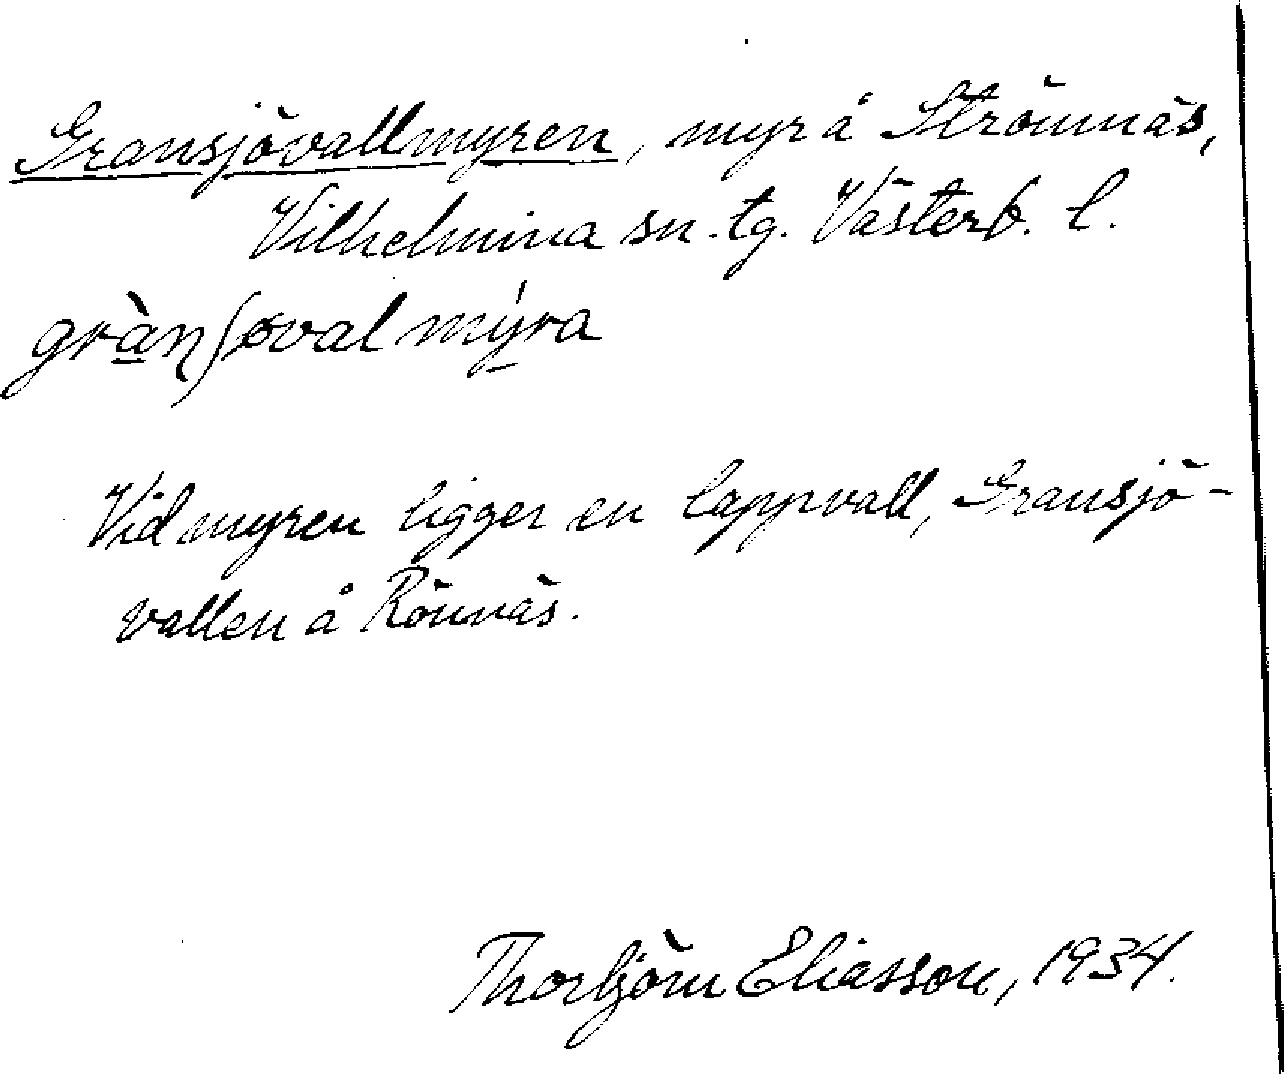 Gransjövallmyren, myr å Strömnäs,
Vilhelmina sn. tg. Västerb. l.
grànʃøval mýra
Vid myren ligger en lappvall, Gransjö-
vallen å Rönnäs.
Thorbjörn Eliasson, 1934.